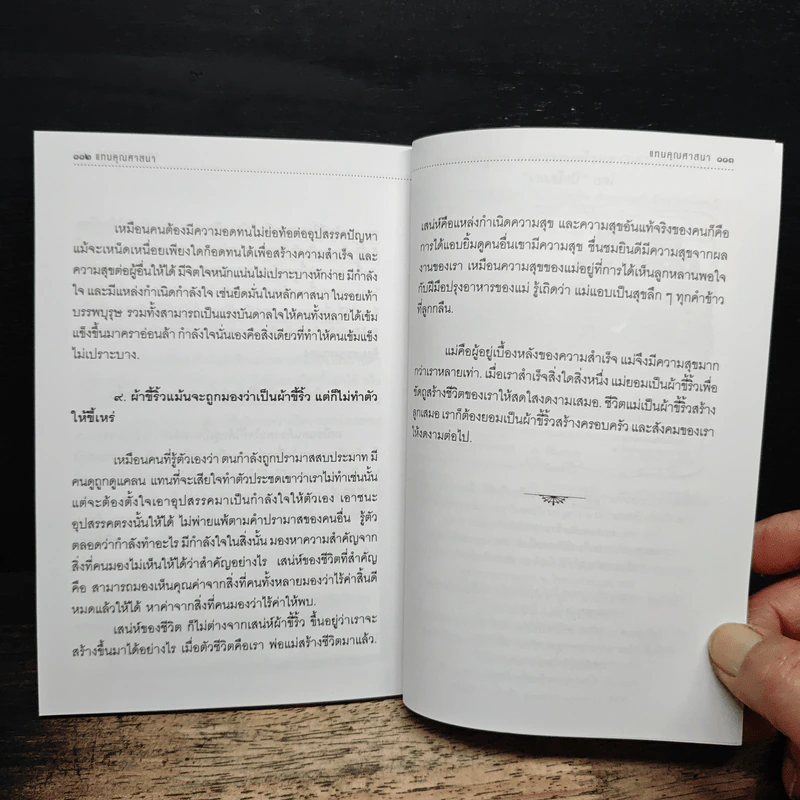 ๑๑๒ แทนคุณศาสนา
เหมือนคนต้องมีความอดทนไม่ย่อท้อต่ออุปสรรคปัญหา
แม้จะเหน็ดเหนื่อยเพียงใดก็อดทนได้เพื่อสร้างความสำเร็จ และ
ความสุขต่อผู้อื่นให้ได้ มีจิตใจหนักแน่นไม่เปราะบางหักง่าย มีกำลัง
ใจ และมีแหล่งกำเนิดกำลังใจ เช่นยึดมั่นในหลักศาสนา ในรอยเท้า
บรรพบุรุษ รวมทั้งสามารถเป็นแรงบันดาลใจให้คนทั้งหลายได้เข้ม
แข็งขึ้นมาคราอ่อนล้า กำลังใจนั่นเองคือสิ่งเดียวที่ทำให้คนเข้มแข็ง
ไม่เปราะบาง.
๙. ผ้าขี้ริ้วแม้นจะถูกมองว่าเป็นผ้าขี้ริ้ว แต่ก็ไม่ทำตัว
ให้ขี้เหร่
เหมือนคนที่รู้ตัวเองว่า ตนกำลังถูกปรามาสสบประมาท มี
คนดูถูกดูแคลน แทนที่จะเสียใจทำตัวประชดเขาว่าเราไม่ทำเช่นนั้น
แต่จะต้องตั้งใจเอาอุปสรรคมาเป็นกำลังใจให้ตัวเอง เอาชนะ
อุปสรรคตรงนั้นให้ได้ ไม่พ่ายแพ้ตามคำปรามาสของคนอื่น รู้ตัว
ตลอดว่ากำลังทำอะไร มีกำลังใจในสิ่งนั้น มองหาความสำคัญจาก
สิ่งที่คนมองไม่เห็นให้ได้ว่าสำคัญอย่างไร เสน่ห์ของชีวิตที่สำคัญ
คือ สามารถมองเห็นคุณค่าจากสิ่งที่คนทั้งหลายมองว่าไร้ค่าสิ้นดี
หมดแล้วให้ได้ หาค่าจากสิ่งที่คนมองว่าไร้ค่าให้พบ.
เสน่ห์ของชีวิต ก็ไม่ต่างจากเสน่ห์ผ้าขี้ริ้ว ขึ้นอยู่ว่าเราจะ
สร้างขึ้นมาได้อย่างไร เมื่อตัวชีวิตคือเรา พ่อแม่สร้างชีวิตมาแล้ว.
แทนคุณศาสนา ๑๑๓
เสน่ห์คือแหล่งกำเนิดความสุข และความสุขอันแท้จริงของคนก็คือ
การได้แอบยิ้มดูคนอื่นเขามีความสุข ชื่นชมยินดีมีความสุขจากผล
งานของเรา เหมือนความสุขของแม่อยู่ที่การได้เห็นลูกหลานพอใจ
กับฝีมือปรุงอาหารของแม่ รู้เถิดว่า แม่แอบเป็นสุขลึก ๆ ทุกคำข้าว
ที่ลูกกลืน.
แม่คือผู้อยู่เบื้องหลังของความสำเร็จ แม่จึงมีความสุขมาก
กว่าเราหลายเท่า. เมื่อเราสำเร็จสิ่งใดสิ่งหนึ่ง แม่ยอมเป็นผ้าขี้ริ้วเพื่อ
ขัดถูสร้างชีวิตของเราให้สดใสงดงามเสมอ. ชีวิตแม่เป็นผ้าขี้ริ้วสร้าง
ลูกเสมอ เราก็ต้องยอมเป็นผ้าขี้ริ้วสร้างครอบครัว และสังคมของเรา
ให้งดงามต่อไป.